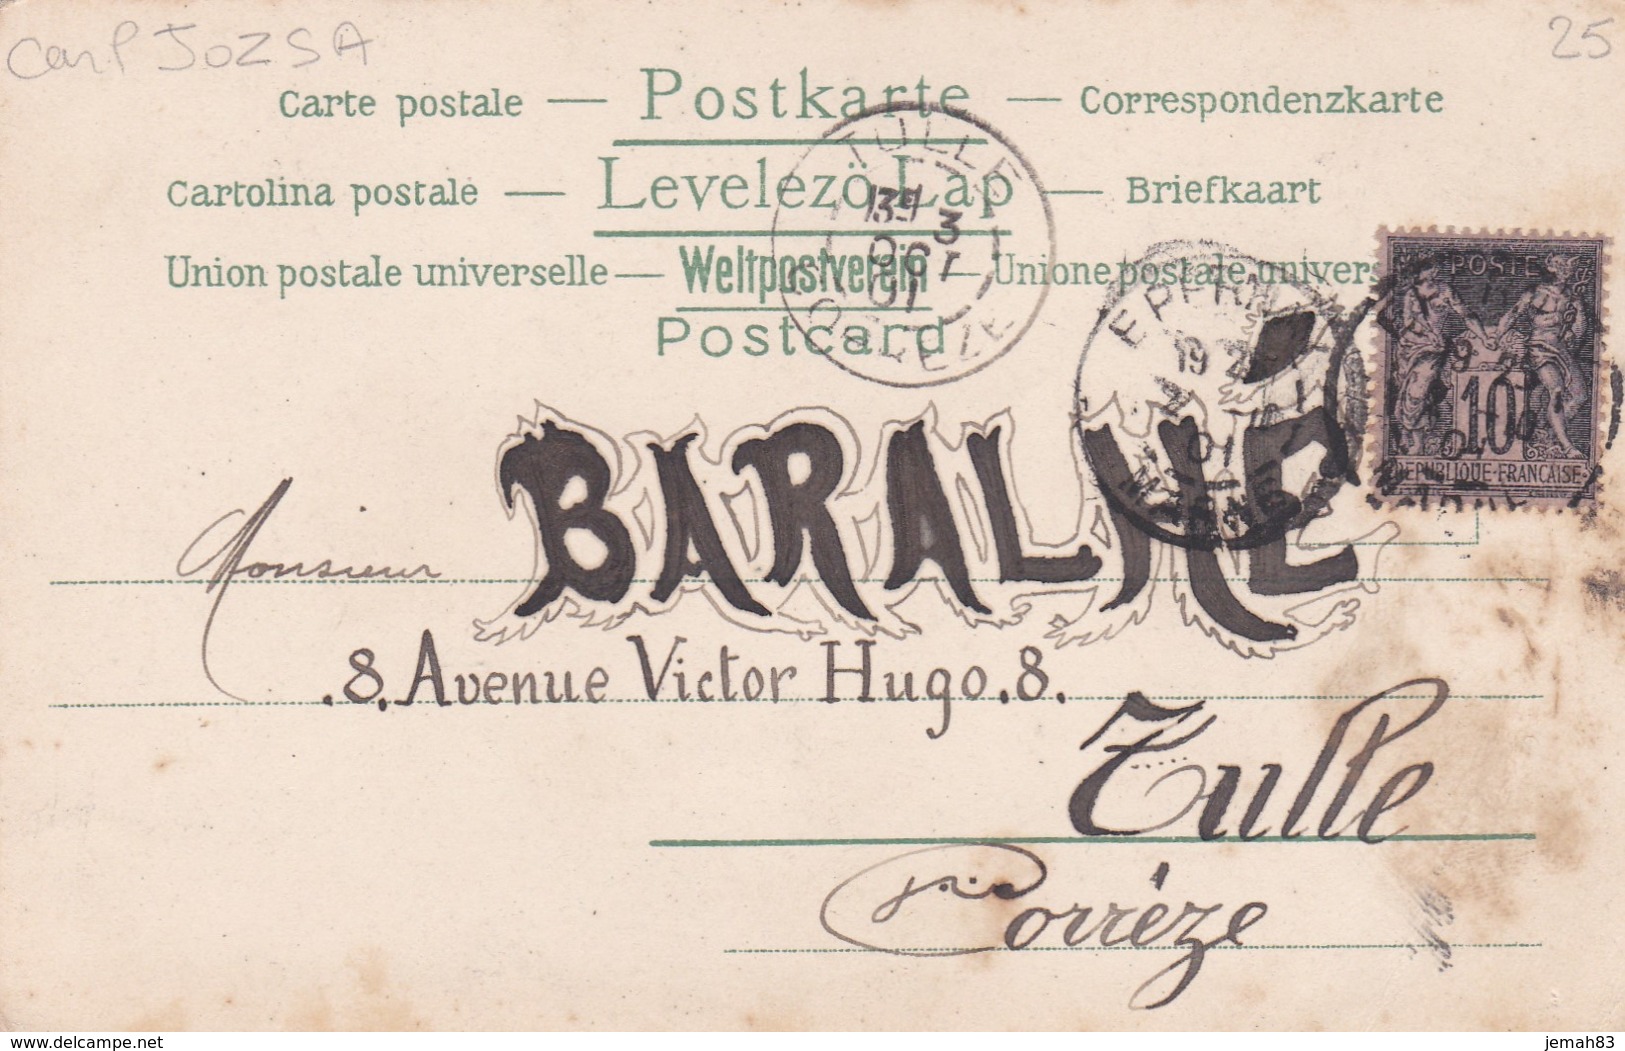 Carl JOZSA
25
Carte postale — Postkarte — Correspondenzkarte
Cartolina postale — Levelező-Lap — Briefkaart
Union postale universelle — Weltpostverein — Unione postale univers
Postcard
TULLE
3
OCT
01
CORREZE
EPERNAY
19
01
MARNE
POSTE
10
REPUBLIQUE-FRANÇAISE
Monsieur BARALHÉ
.8. Avenue Victor Hugo.8.
Tulle
Corréze
www.delcampe.net
jemah83